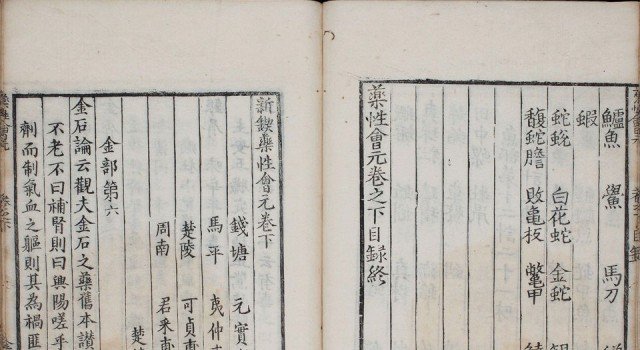 鱸魚 鱟 馬刀
蝦
蛇蛻 白花蛇 金蛇
蝮蛇膽 敗亀板 鼈甲
藥性會元卷之下目録終
新鍥藥性會元卷下
錢塘 元實
馬平 夷仲
楚陵 可貞
周南 君采
楚
金部第六
金石論云觀夫金石之藥舊本讃
不老不曰補腎則曰興陽嗟乎
劑而制氣血之軀則其為禍匪